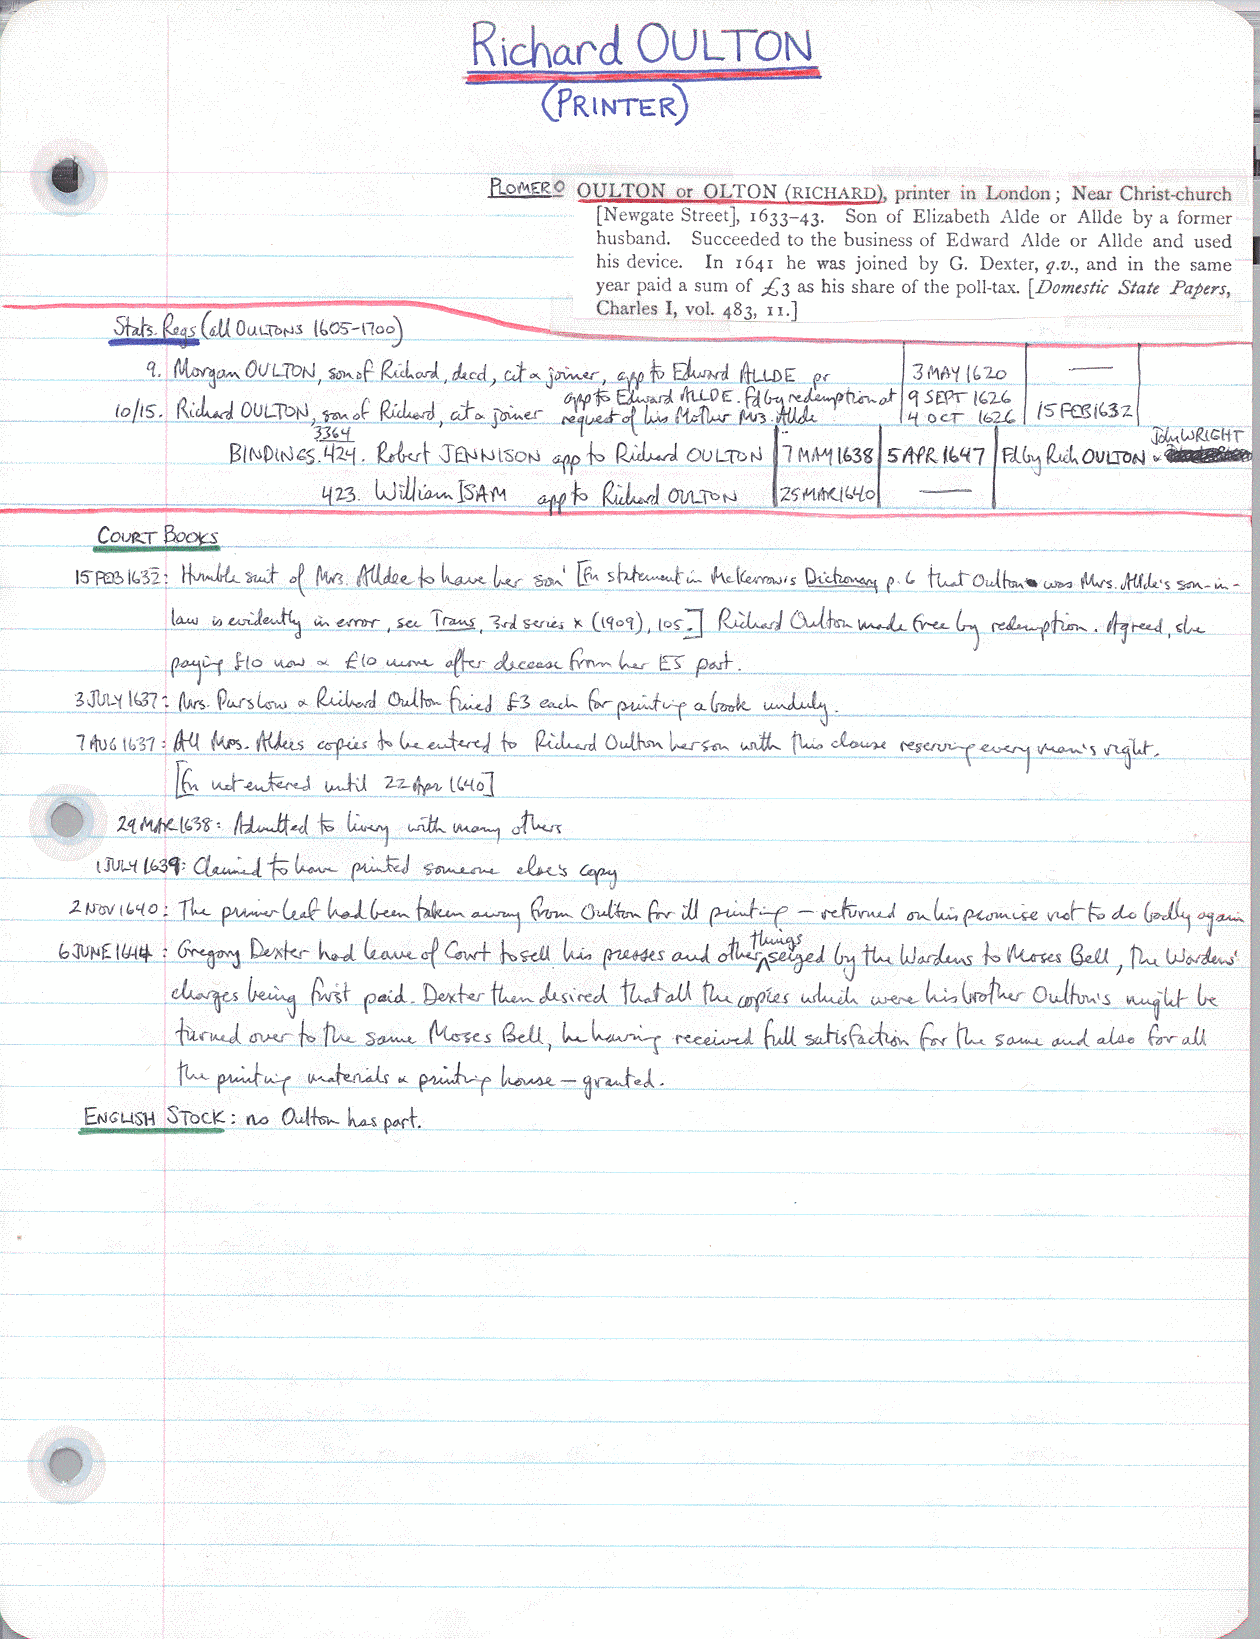 Richard OULTON
(PRINTER)
PLOMER: OULTON or OLTON (RICHARD), printer in London; Near Christ-church
[Newgate Street], 1633-43. Son of Elizabeth Alde or Allde by a former
husband. Succeeded to the business of Edward Alde or Allde and used
his device. In 1641 he was joined by G. Dexter, q.v., and in the same
year paid a sum of £3 as his share of the poll-tax. [Domestic State Papers,
Charles I, vol. 483, 11.]
Stats. Regs (all OULTONS 1605-1700)
9. Morgan OULTON, son of Richard, decd, cit & joiner, app to Edward ALLDE pr 3 MAY 1620 —
app to Edward ALLDE. Fd by redemption at 9 SEPT 1626
10/15. Richard OULTON, son of Richard, cit & joiner request of his Mother Mrs. Allde 4 OCT 1626 15 FEB 1632
3364 John WRIGHT
BINDINGS. 424. Robert JENNISON app to Richard OULTON 7 MAY 1638 5 APR 1647 Fd by Rich OULTON &
423. William ISAM app to Richard OULTON 25 MAR 1640 —
COURT BOOKS
15 FEB 1632: Humble suit of Mrs. Alldee to have her son' [Fn statement in McKerrow's Dictionary p. 6 that Oulton was Mrs. Allde's son-in-
law is evidently in error, see Trans, 3rd series x (1909), 105.] Richard Oulton made free by redemption. Agreed, she
paying £10 now & £10 more after decease from her ES part.
3 JULY 1637: Mrs. Purslow & Richard Oulton fined £3 each for printing a book unduly.
7 AUG 1637: All Mrs. Aldees copies to be entered to Richard Oulton her son with this clause reserving every man's right.
[Fn not entered until 22 Apr 1640]
29 MAR 1638: Admitted to livery with many others
1 JULY 1639: Claimed to have printed someone else's copy
2 NOV 1640: The primer leaf had been taken away from Oulton for ill printing — returned on his promise not to do badly again
6 JUNE 1644: Gregory Dexter had leave of Court to sell his presses and other things seized by the Wardens to Moses Bell, the Wardens'
charges being first paid. Dexter then desired that all the copies which were his brother Oulton's might be
turned over to the same Moses Bell, he having received full satisfaction for the same and also for all
the printing materials & printing house — granted.
ENGLISH STOCK: no Oulton has part.